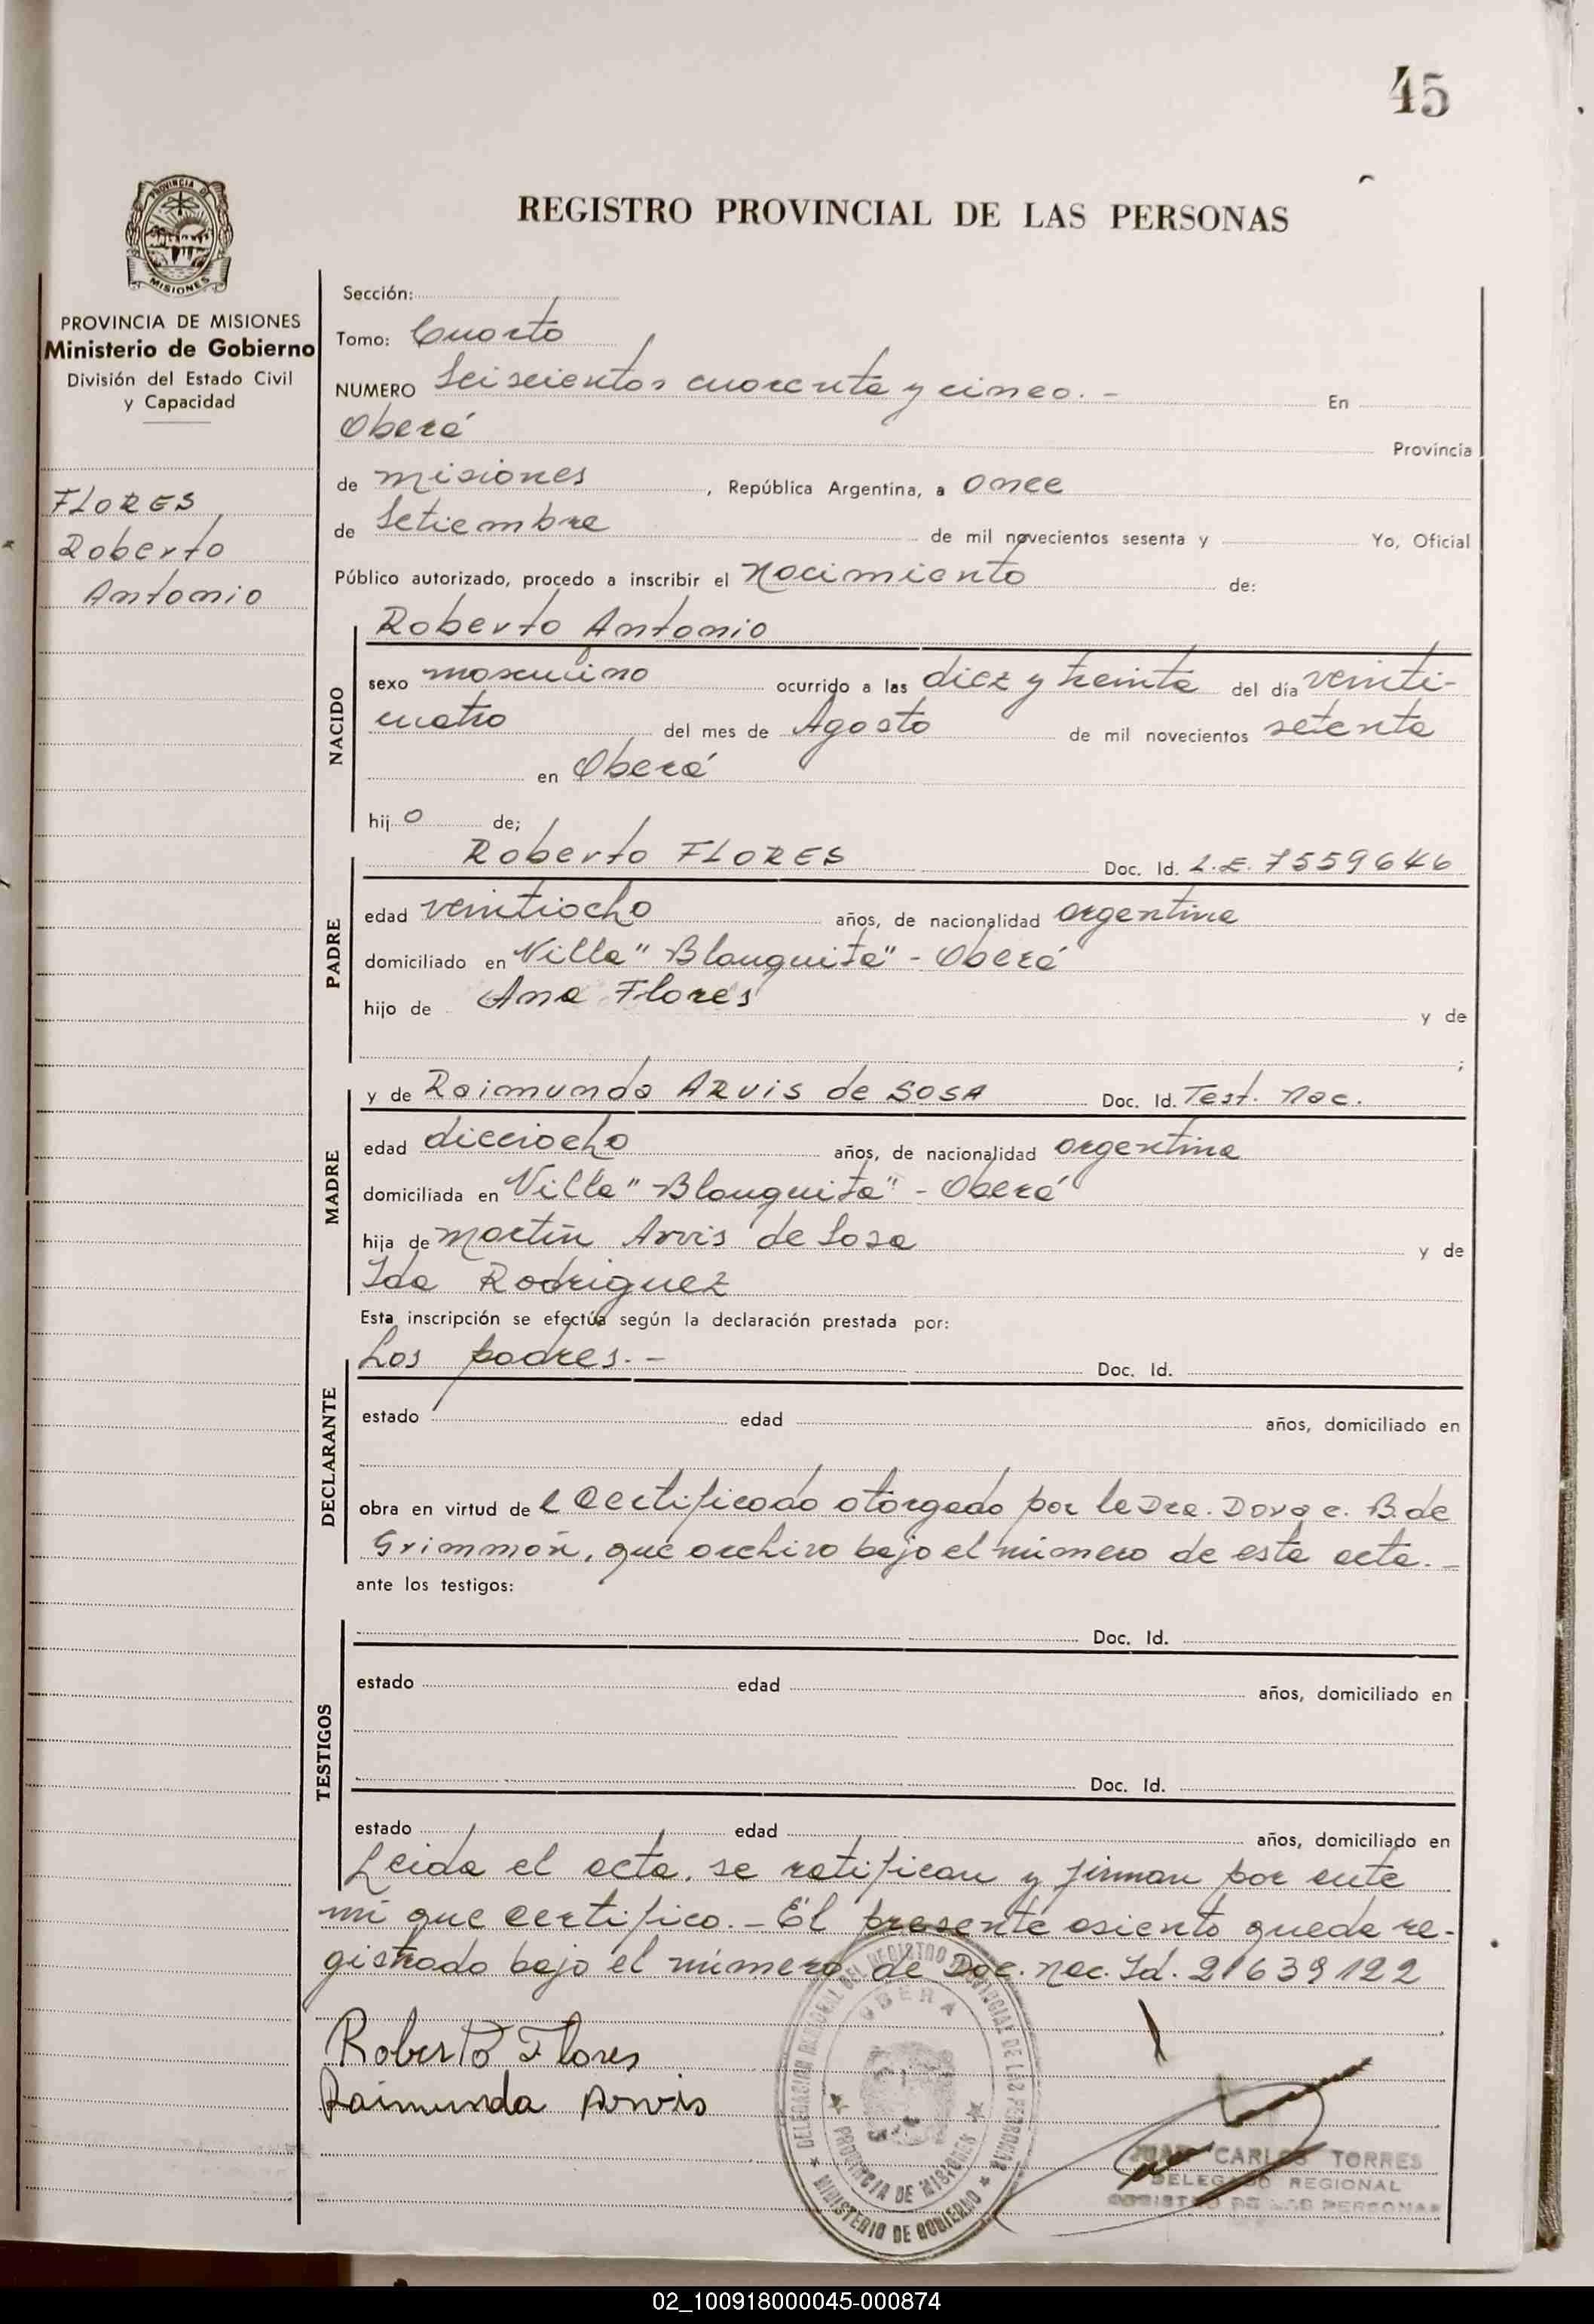 45
REGISTRO PROVINCIAL DE LAS PERSONAS
PROVINCIA DE
MISIONES
PROVINCIA DE MISIONES
Ministerio de Gobierno
División del Estado Civil
y Capacidad
FLORES
Roberto
Antonio
Sección:
Tomo: Cuarto
NUMERO Seiscientos cuarenta y cinco. - En
Oberá Provincia
de Misiones, República Argentina, a Once
de Setiembre de mil novecientos sesenta y Yo, Oficial
Público autorizado, procedo a inscribir el Nacimiento de:
NACIDO
Roberto Antonio
sexo masculino ocurrido a las diez y treinta del día veinti-
cuatro del mes de Agosto de mil novecientos setenta
en Oberá
hijo de;
PADRE
Roberto FLORES Doc. Id. L.E. 7559646
edad veintiocho años, de nacionalidad argentina
domiciliado en Villa "Blanquita" - Oberá
hijo de Ana Flores y de
;
MADRE
y de Raimunda ARVIS de SOSA Doc. Id. Test. Nac.
edad dieciocho años, de nacionalidad argentina
domiciliada en Villa "Blanquita" - Oberá
hija de Martín Arvis de Sosa y de
Ida Rodriguez
Esta inscripción se efectúa según la declaración prestada por:
DECLARANTE
Los padres. - Doc. Id.
estado edad años, domiciliado en
obra en virtud del Certificado otorgado por la Dra. Dora C. B. de
Grimmon, que archivo bajo el número de esta acta. -
ante los testigos:
TESTIGOS
Doc. Id.
estado edad años, domiciliado en
Doc. Id.
estado edad años, domiciliado en
Leida el acta, se ratifican y firman por ante
mí que certifico. - El presente asiento queda re-
gistrado bajo el número de Doc. Nac. Id. 21639122
Roberto Flores
Raimunda Arvis
OBERA
PROVINCIA DE MISIONES
MINISTERIO DE GOBIERNO
JUAN CARLOS TORRES
DELEGADO REGIONAL
REGISTRO DE LAS PERSONAS
02_100918000045-000874